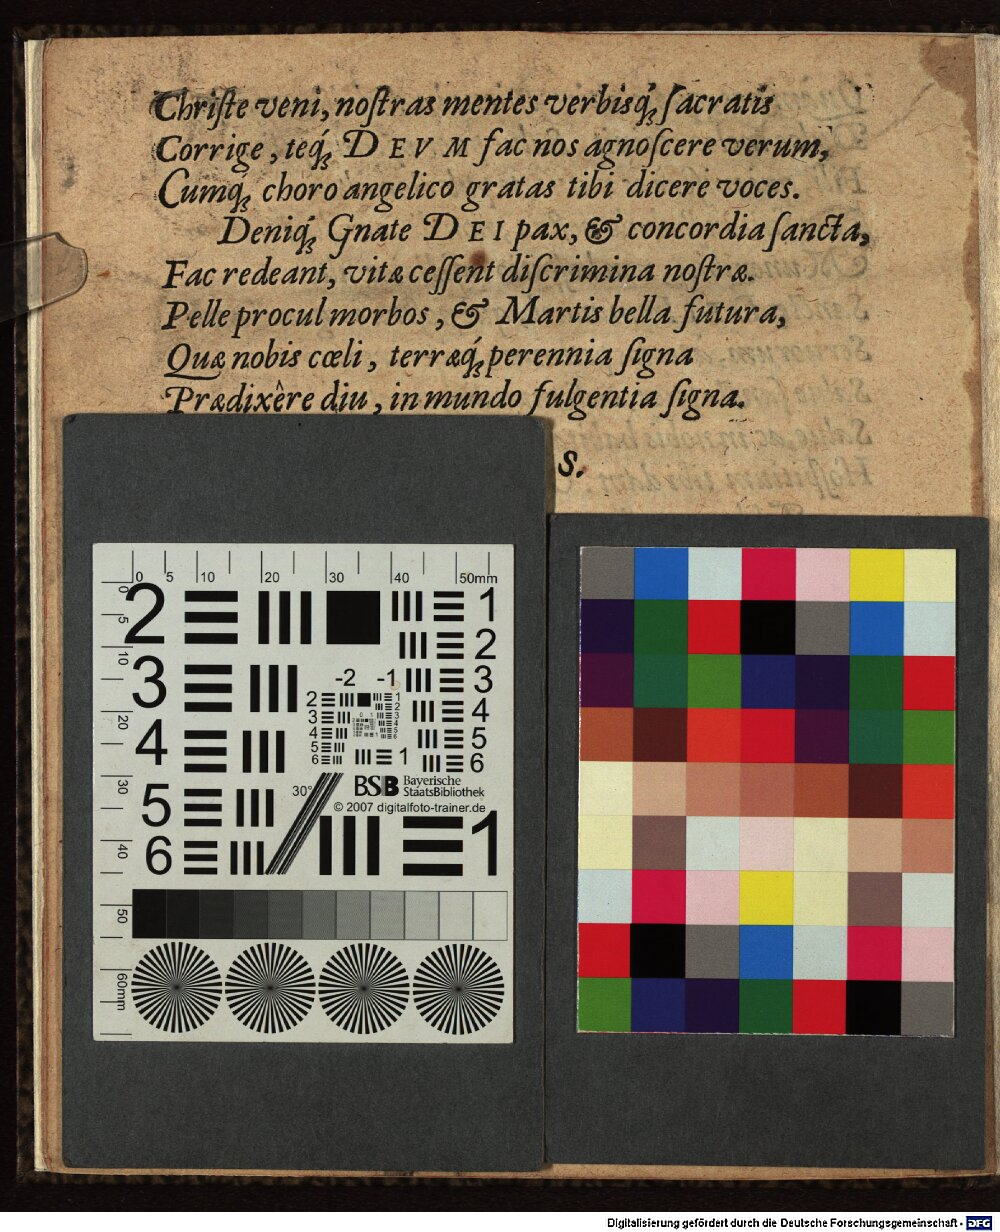 Chriſte veni, noſtras mentes verbisq́ꝫ ſacratis
Corrige, teq́ꝫ DEVM fac nos agnoſcere verum,
Cumq́ꝫ choro angelico gratas tibi dicere voces.
Deniq́ꝫ Gnate DEI pax, & concordia ſancta,
Fac redeant, vitæ ceſſent diſcrimina noſtræ.
Pelle procul morbos, & Martis bella futura,
Quæ nobis cœli, terræq́ꝫ perennia ſigna
Prædixêre diu, in mundo fulgentia ſigna.
S.
0 5 10 20 30 40 50mm
0 5 10 20 30 40 50 60mm
2 1
2
3 3
-2 -1
4 4
5
6
2 1
3 2
4 3
5 4
6 5
6
1
BSB Bayerische
StaatsBibliothek
30°
© 2007 digitalfoto-trainer.de
5
6
1
Digitalisierung gefördert durch die Deutsche Forschungsgemeinschaft - DFG